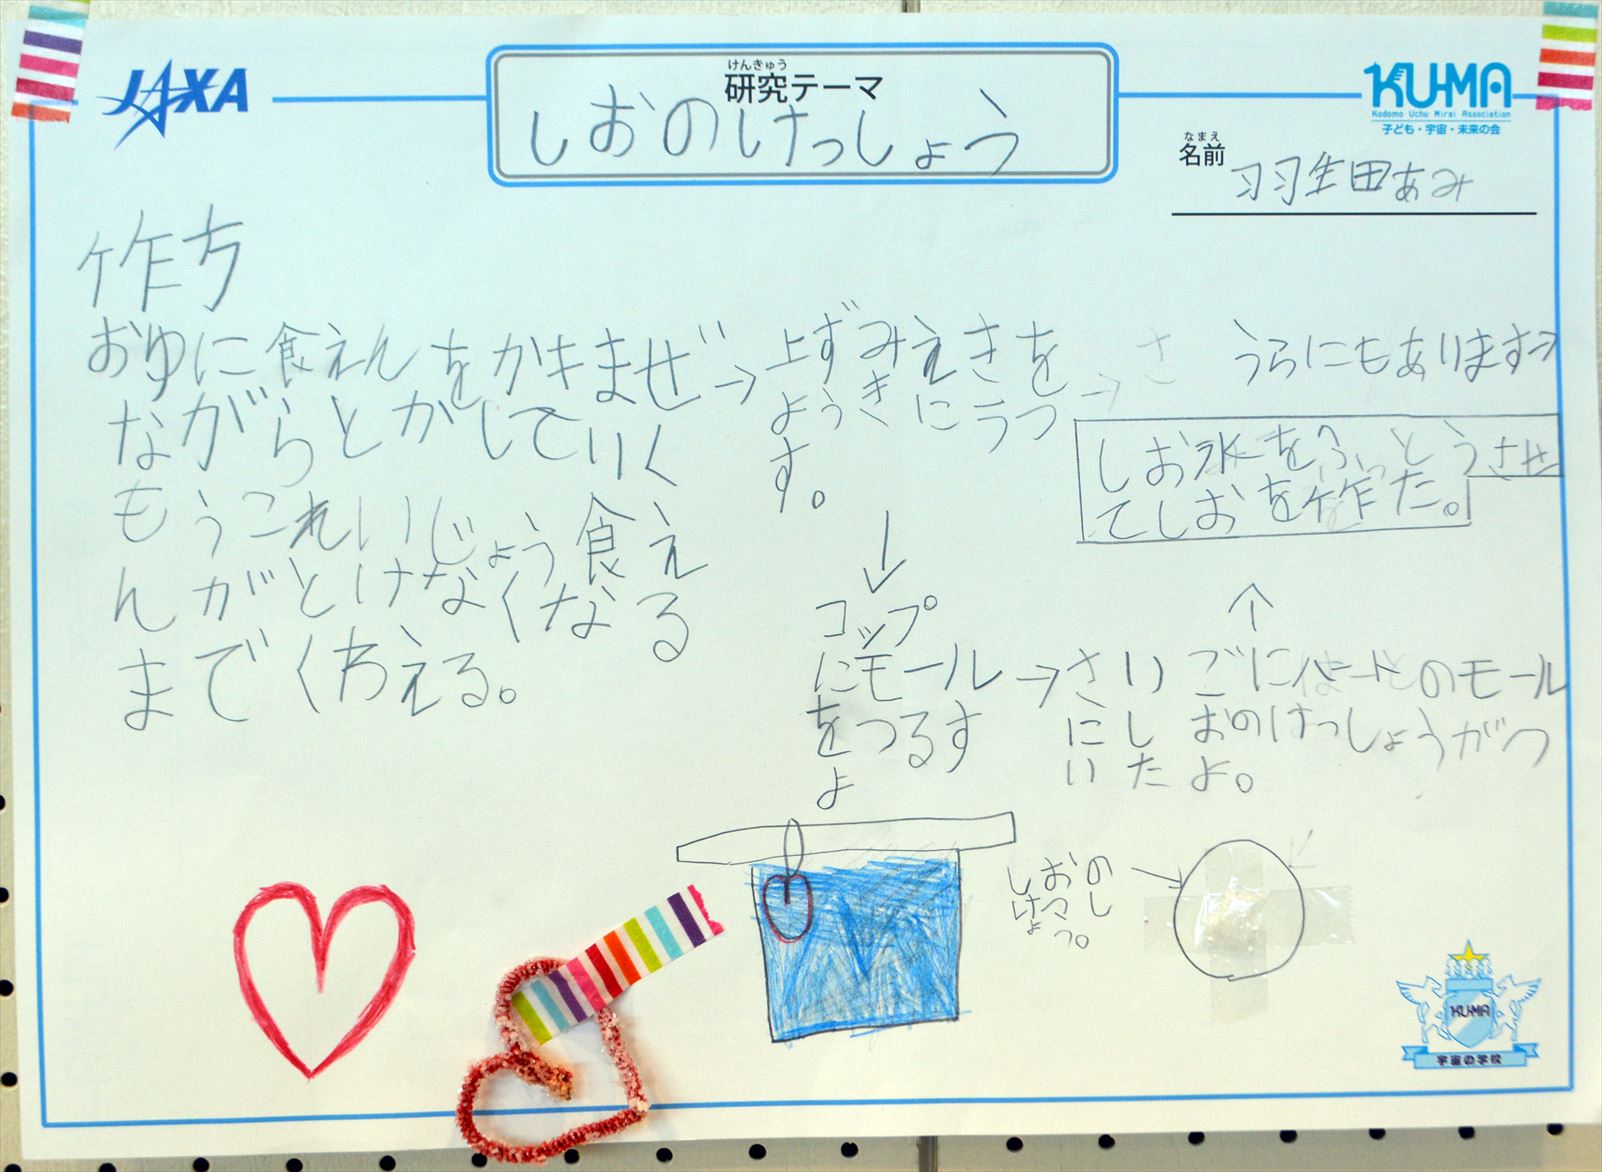 JAXA
けんきゅう
研究テーマ
しおのけっしょう
KU-MA
Kodomo Uchu Mirai Association
子ども・宇宙・未来の会
なまえ
名前
羽生田あみ
作ち
おゆに食えんをかキまぜ
ながらとかしていく
もうこれいじょう食え
んがとけなくなる
までくわえる。
→上ずみえきを
ようきにうつ
す。
→さ
うらにもあります⇒
しお水をふっとうさせ
てしおを作た。
↓
コップ
にモール
をつるす
よ
↑
→さいごにハートのモール
にしおのけっしょうがつ
いたよ。
しおの
けっし
ょう。
KU-MA
宇宙の学校